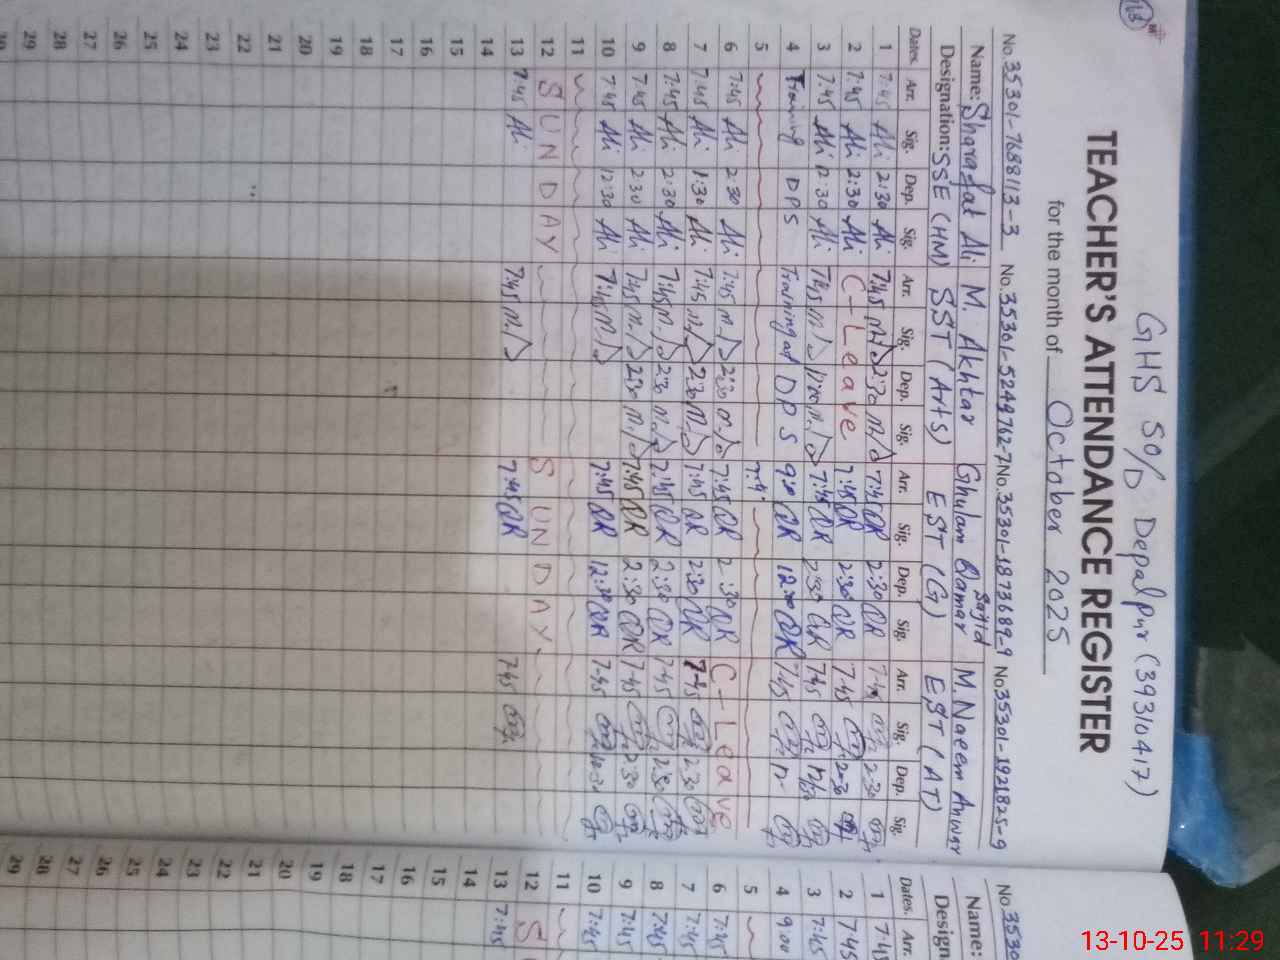 GHS 50/D Depalpur (39310417)
TEACHER'S ATTENDANCE REGISTER
for the month of October 2025
No.35301-7688113-3 No.35301-5249762-7 No.35301-1873689-9 No35301-1921825-9
Name: Sharafat Ali M. Akhtar Ghulam Qamar Sajid M. Naeem Anwar
Designation: SSE (HM) SST (Arts) EST (G) EST (AT)
Dates. Arr. Sig. Dep. Sig. Arr. Sig. Dep. Sig. Arr. Sig. Dep. Sig. Arr. Sig. Dep. Sig.
1 7:45 Ali 2:30 Ali 7:45 2:30 7:45 QR 2:30 QR 2:30
2 7:45 Ali 2:30 Ali C-Leave 7:45 QR 2:30 QR 7:45 2:30
3 7:45 Ali 12:30 Ali 7:45 7:45 QR 2:30 QR 7:45
4 Training DPS Training at DPS 9:00 QR 12:00 QR 7:45
5
6 7:45 Ali 2:30 Ali 7:45 2:30 7:45 QR 2:30 QR C-Leave
7 7:45 Ali 1:30 Ali 7:45 2:30 7:45 QR 2:30 QR 7:45 2:30
8 7:45 Ali 2:30 Ali 7:45 2:30 7:45 QR 2:30 QR 7:45 2:30
9 7:45 Ali 2:30 Ali 7:45 2:30 7:45 QR 2:30 QR 7:45 2:30
10 7:45 Ali 12:30 Ali 7:45 7:45 QR 12:30 QR 7:45
11
12 SUNDAY SUNDAY
13 7:45 Ali 7:45 7:45 QR 7:45
14
15
16
17
18
19
20
21
22
23
24
25
26
27
28
29
30
No 3530
Name:
Design
Dates. Arr.
1 7:45
2 7:45
3 7:45
4 9:00
5
6 7:45
7 7:45
8 7:45
9 7:45
10 7:45
11
12 S
13 7:45
14
15
16
17
18
19
20
21
22
23
24
25
26
27
28
29
13-10-25 11:29